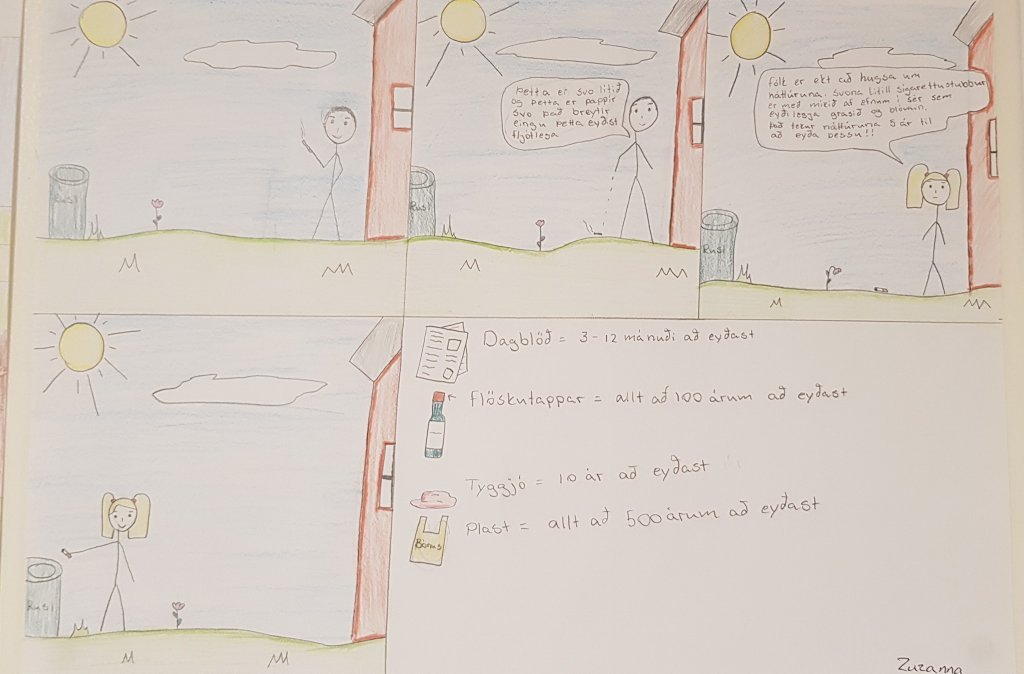 Rusl
Þetta er svo lítið
og þetta er pappír
svo það breytir
eingu þetta eyðst
fljótlega
Rusl
Fólt er ekt að hugsa um
náttúruna. Svona lítill sigarettustubbur
er með mikið af efnum í sér sem
eyðileggja grasið og blómin.
Það tekur náttúruna 5 ár til
að eyða þessu!!
Rusl
Rusl
Dagblöð = 3-12 mánuði að eyðast
Flöskutappar = allt að 100 árum að eyðast
Tyggjó = 10 ár að eyðast
Plast = allt að 500 árum að eyðast
Bónus
Zuzanna